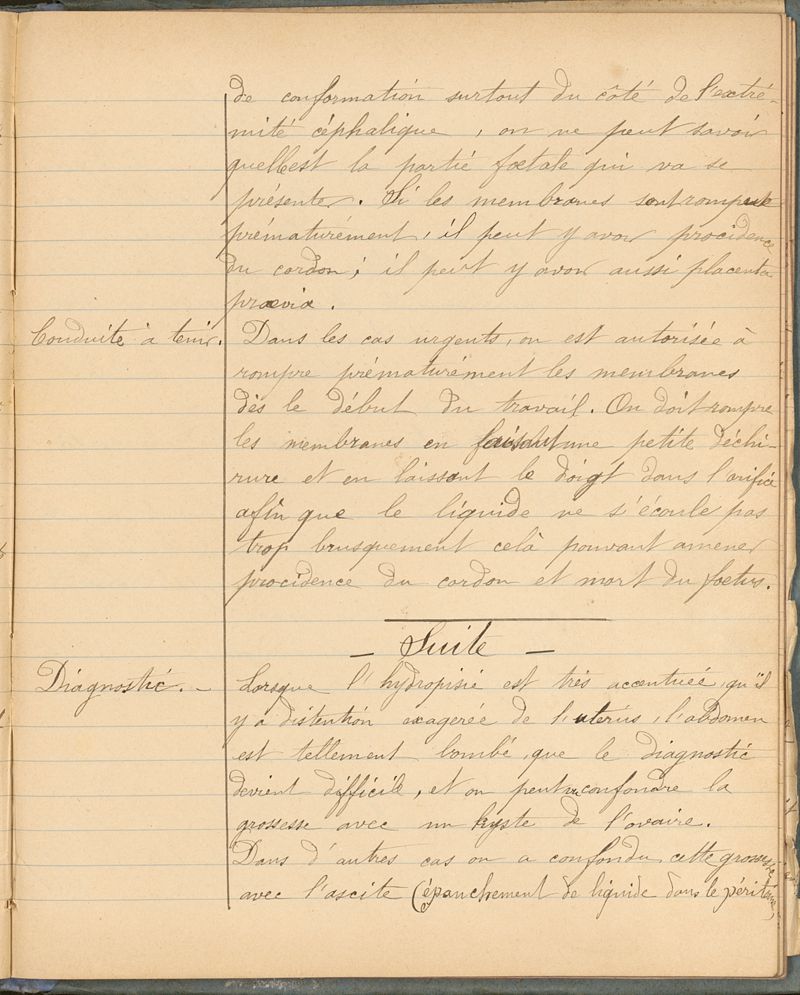 de conformation surtout du côté de l'extré-
mité céphalique, on ne peut savoir
quelle est la partie foetale qui va se
présenter. Si les membranes sont rompues
prématurément, il peut y avoir procidence
du cordon ; il peut y avoir aussi placenta
proevia.
Conduite à tenir. Dans les cas urgents, on est autorisée à
rompre prématurément les membranes
dès le début du travail. On doit rompre
les membranes en faisant une petite déchi-
rure et en laissant le doigt dans l'orifice
afin que le liquide ne s'écoule pas
trop brusquement celà pouvant amener
procidence du cordon et mort du foetus.
— Suite —
Diagnostic. — Lorsque l'hydropisie est très accentuée, qu'il
y a distention exagerée de l'uterus, l'abdomen
est tellement bombé, que le diagnostic
devient difficile, et on peut confondre la
grossesse avec un kyste de l'ovaire.
Dans d'autres cas on a confondu cette grossesse
avec l'ascite (épanchement de liquide dans le péritoine,